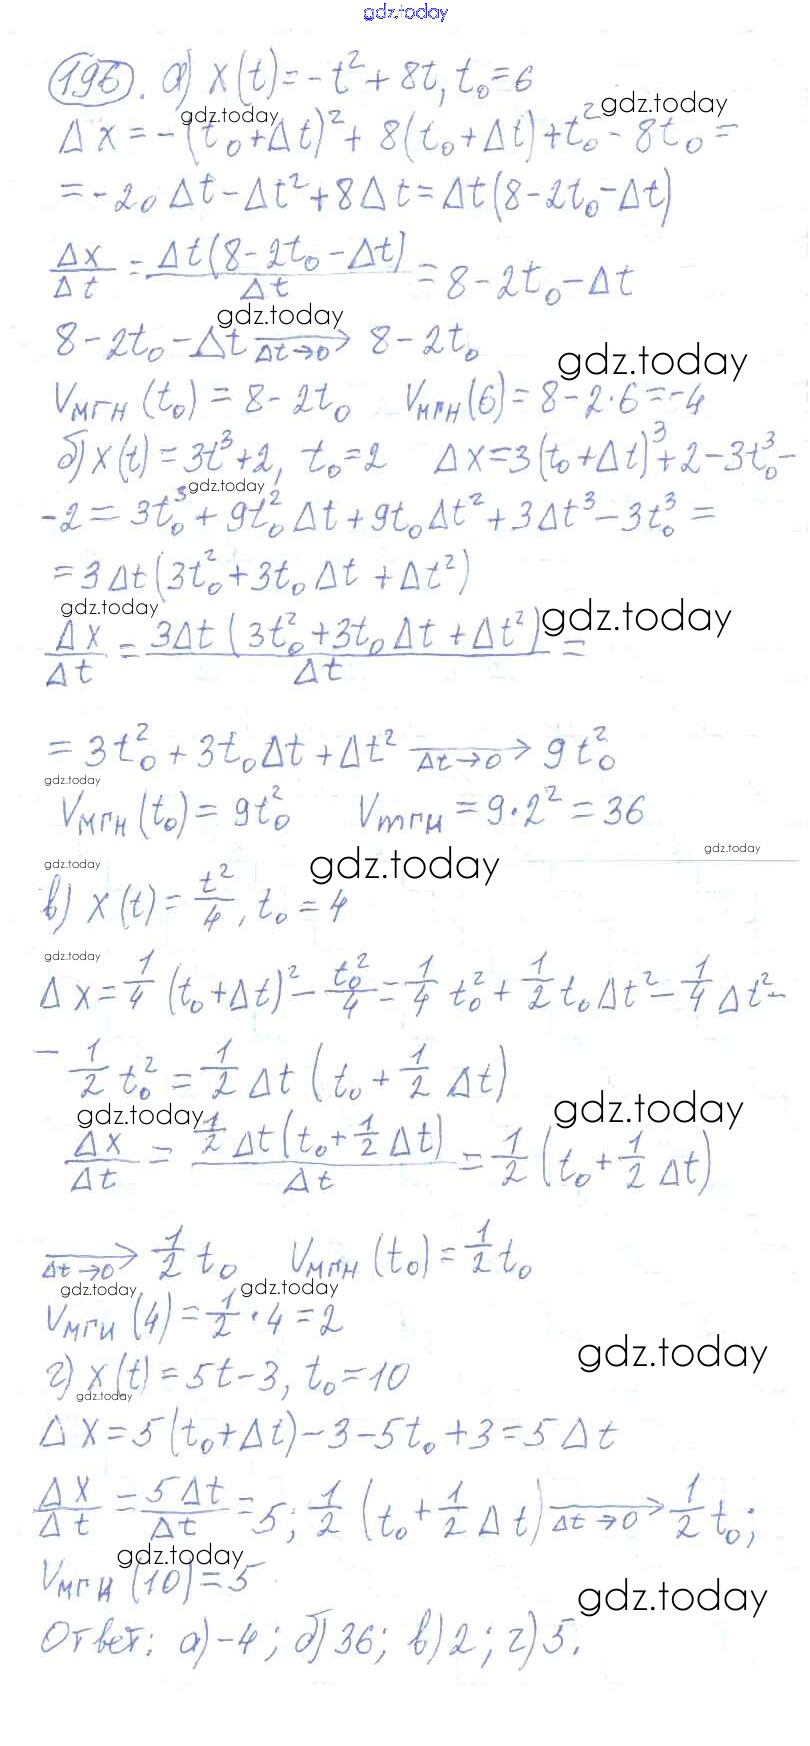 gdz.today
196. а) x(t) = -t² + 8t, t₀ = 6
gdz.today gdz.today
Δx = -(t₀+Δt)² + 8(t₀+Δt) + t₀² - 8t₀ =
= -2₀Δt - Δt² + 8Δt = Δt(8 - 2t₀ - Δt)
Δx/Δt = Δt(8 - 2t₀ - Δt)/Δt = 8 - 2t₀ - Δt
gdz.today
8 - 2t₀ - Δt →(Δt→0) 8 - 2t₀
gdz.today
Vмгн(t₀) = 8 - 2t₀ Vмгн(6) = 8 - 2·6 = -4
б) x(t) = 3t³ + 2, t₀ = 2 Δx = 3(t₀+Δt)³ + 2 - 3t₀³ -
gdz.today
-2 = 3t₀³ + 9t₀²Δt + 9t₀Δt² + 3Δt³ - 3t₀³ =
= 3Δt(3t₀² + 3t₀Δt + Δt²)
gdz.today gdz.today
Δx/Δt = 3Δt(3t₀² + 3t₀Δt + Δt²)/Δt =
= 3t₀² + 3t₀Δt + Δt² →(Δt→0) 9t₀²
gdz.today
Vмгн(t₀) = 9t₀² Vмгн = 9·2² = 36
gdz.today
gdz.today gdz.today
в) x(t) = t²/4, t₀ = 4
gdz.today
Δx = 1/4 (t₀+Δt)² - t₀²/4 = 1/4 t₀² + 1/2 t₀Δt² - 1/4 Δt² -
- 1/2 t₀² = 1/2 Δt (t₀ + 1/2 Δt)
gdz.today gdz.today
Δx/Δt = 1/2 Δt(t₀ + 1/2 Δt)/Δt = 1/2 (t₀ + 1/2 Δt)
→(Δt→0) 1/2 t₀ Vмгн(t₀) = 1/2 t₀
gdz.today gdz.today
Vмгн(4) = 1/2 · 4 = 2
gdz.today
г) x(t) = 5t - 3, t₀ = 10
gdz.today
Δx = 5(t₀+Δt) - 3 - 5t₀ + 3 = 5Δt
Δx/Δt = 5Δt/Δt = 5; 1/2 (t₀ + 1/2 Δt) →(Δt→0) 1/2 t₀;
gdz.today
Vмгн(10) = 5
gdz.today
Ответ: а) -4; б) 36; в) 2; г) 5.